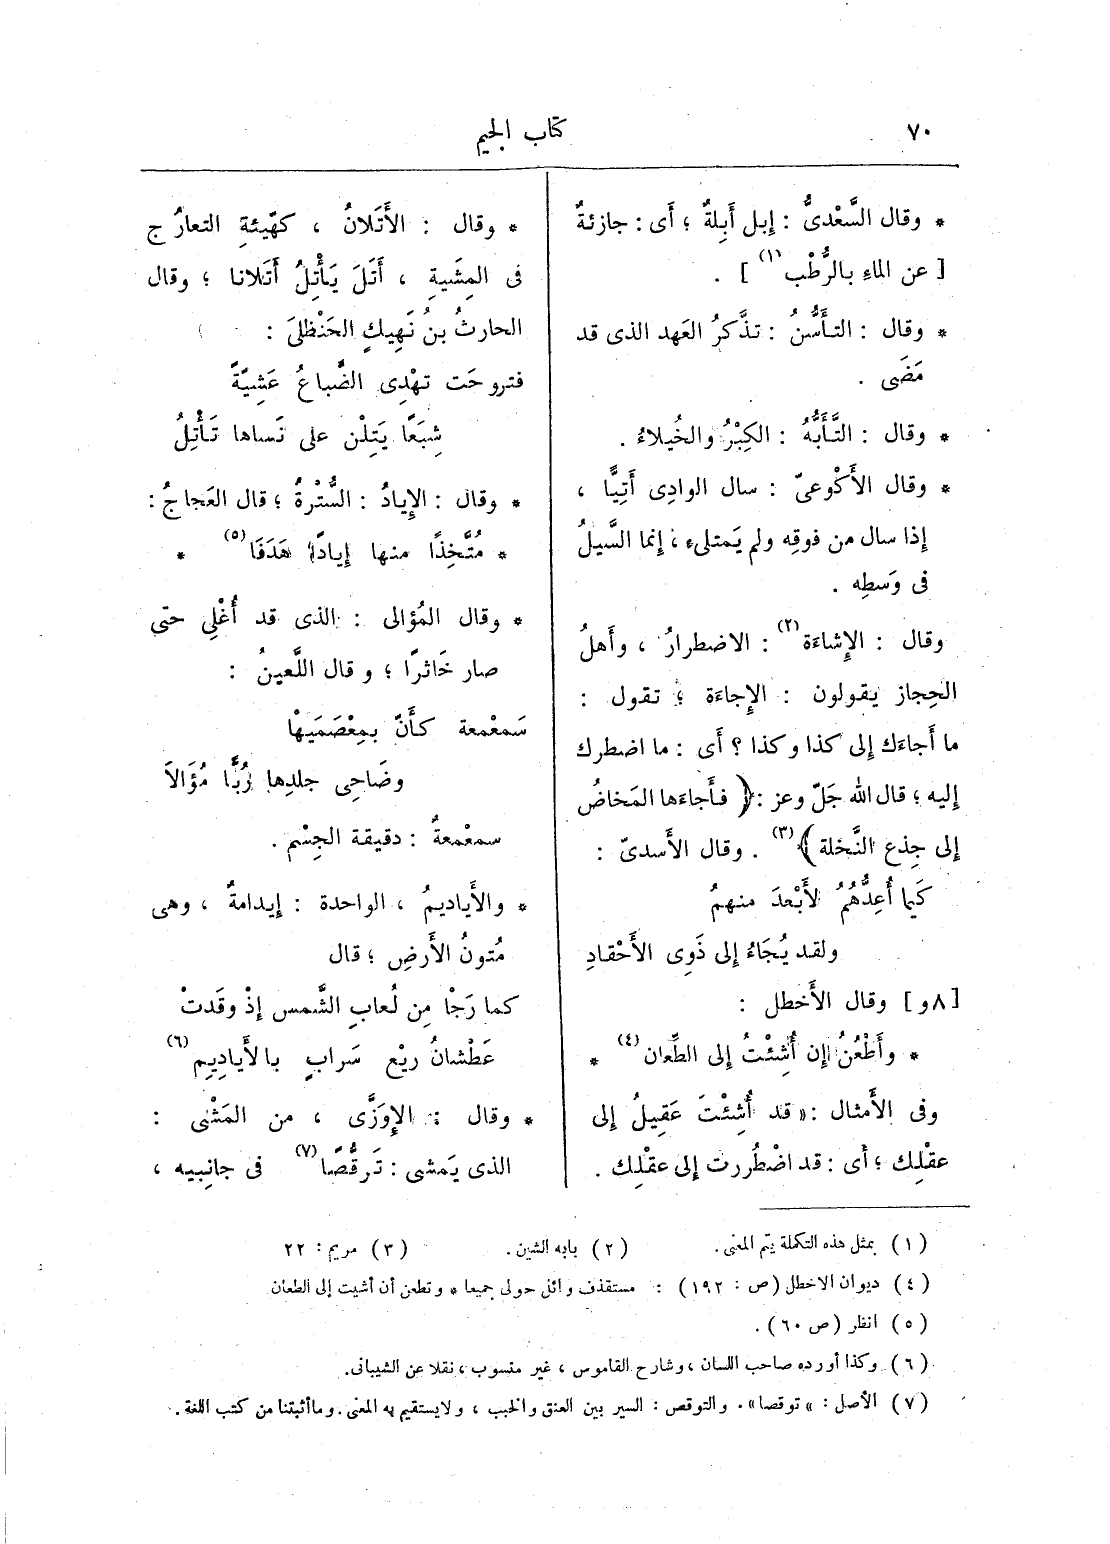 ٧٠
كتاب الجيم
* وقال السَّعْدىُّ : إبل أَبِلةٌ ؛ أَى : جازئةٌ
[ عن الماءِ بالرُّطْب (١) ] .
* وقال : التأَسُّنُ : تذَكرُ العَهد الذى قد
مَضَى .
* وقال : التَّأَبُّهُ : الكِبْرُ والخُيلاءُ .
* وقال الأَكْوعىّ : سال الوادِى أَتِيًّا ،
إذا سال من فوقِه ولم يَمتلىءِ ، إنما السَّيلُ
فى وَسطِه .
وقال : الإِشاءَة (٢) : الاضطرارُ ، وأَهلُ
الحِجاز يقولون : الإِجاءَة ؛ تقول :
ما أَجاءَك إلى كذا وكذا ؟ أَى : ما اضطرك
إليه ؛ قال الله جَلّ وعز : ﴿ فأَجاءَها المَخاضُ
إلى جِذع النَّخلة ﴾ (٣) . وقال الأَسدىّ :
كَيما أُعِدُّهُمُ لأَبْعدَ منهمُ
ولقد يُجَاءُ إلى ذَوِى الأَحْقادِ
[ ٨ و ] وقال الأَخطل :
* وأَطْعُنُ إن أُشِئْتُ إلى الطِّعان (٤) *
وفى الأَمثال : « قد أُشِئْتَ عَقِيلُ إلى
عقْلِك ؛ أى : قد اضْطُررت إلى عقْلِك .
* وقال : الأَتَلانُ ، كهيْئةِ التعارُج
فى المِشَيةِ ، أَتَلَ يَأْتِلُ أَتَلانا ؛ وقال
الحارثُ بنُ نَهِيكٍ الحَنْظلىَ :
فتروحَت تهْدِى الضِّباعُ عَشِيّةً
شِبَعًا يَتِلْن على نَساها تَأْتِلُ
* وقال : الإِيادُ : السُّتْرةُ ؛ قال العَجاجُ :
* مُتَّخِذًا منها إيادًا هَدَفَا (٥) *
* وقال المُؤالى : الذى قد أُغْلِى حتى
صار خَاثرًا ؛ وقال اللَّعينُ :
سَمعْمعة كأَنّ بمِعْصَمَيْها
وضَاحِى جلدِها رُبًّا مُؤَالاَ
سمعْمعةُ : دقيقة الجِسْم .
* والأَياديمُ ، الواحدة : إيدامةٌ ، وهى
مُتونُ الأَرضِ ؛ قال
كما رَجَا مِن لُعابِ الشَّمس إذْ وقَدتْ
عَطْشانُ ريْع سَرابٍ بالأَيادِيم (٦)
* وقال : الإِوَزَّى ، من المَشْى :
الذى يَمشى : تَرقُّصًا (٧) فى جانِبيه ،
(١) بمثل هذه التكملة يتم المعنى .
(٢) بابه الشين .
(٣) مريم : ٢٢
(٤) ديوان الاخطل (ص : ١٩٢) : مستقذف وائل حولى جميعا * وتطعن أن أشيت إلى الطعان
(٥) انظر (ص ٦٠) .
(٦) وكذا أورده صاحب اللسان ، وشارح القاموس ، غير منسوب ، نقلا عن الشيبانى .
(٧) الأصل : « توقصا » . والتوقص : السير بين العنق والخبب ، ولايستقيم به المعنى . وماأثبتنا من كتب اللغة .